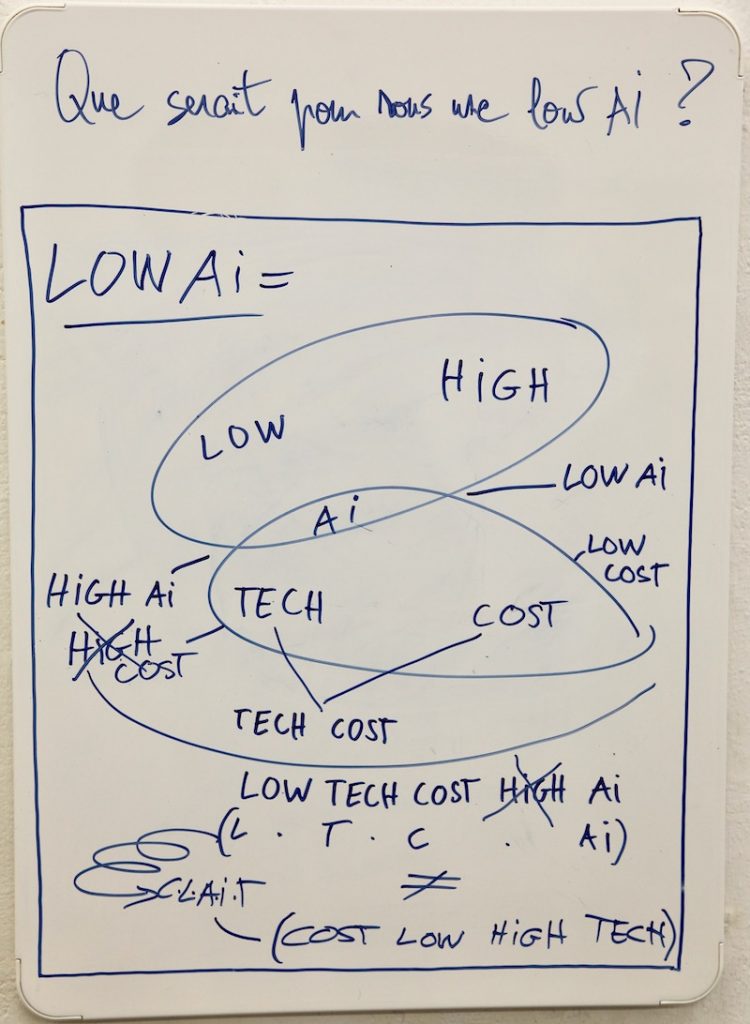 Que serait pour nous une low Ai ?
LOW Ai =
HiGH
LOW
LOW Ai
Ai
LOW
COST
HiGH Ai
TECH
COST
HiGH
COST
TECH COST
LOW TECH COST HiGH Ai
(L . T . C . Ai)
C.L.Ai.T
≠
(COST LOW HiGH TECH)